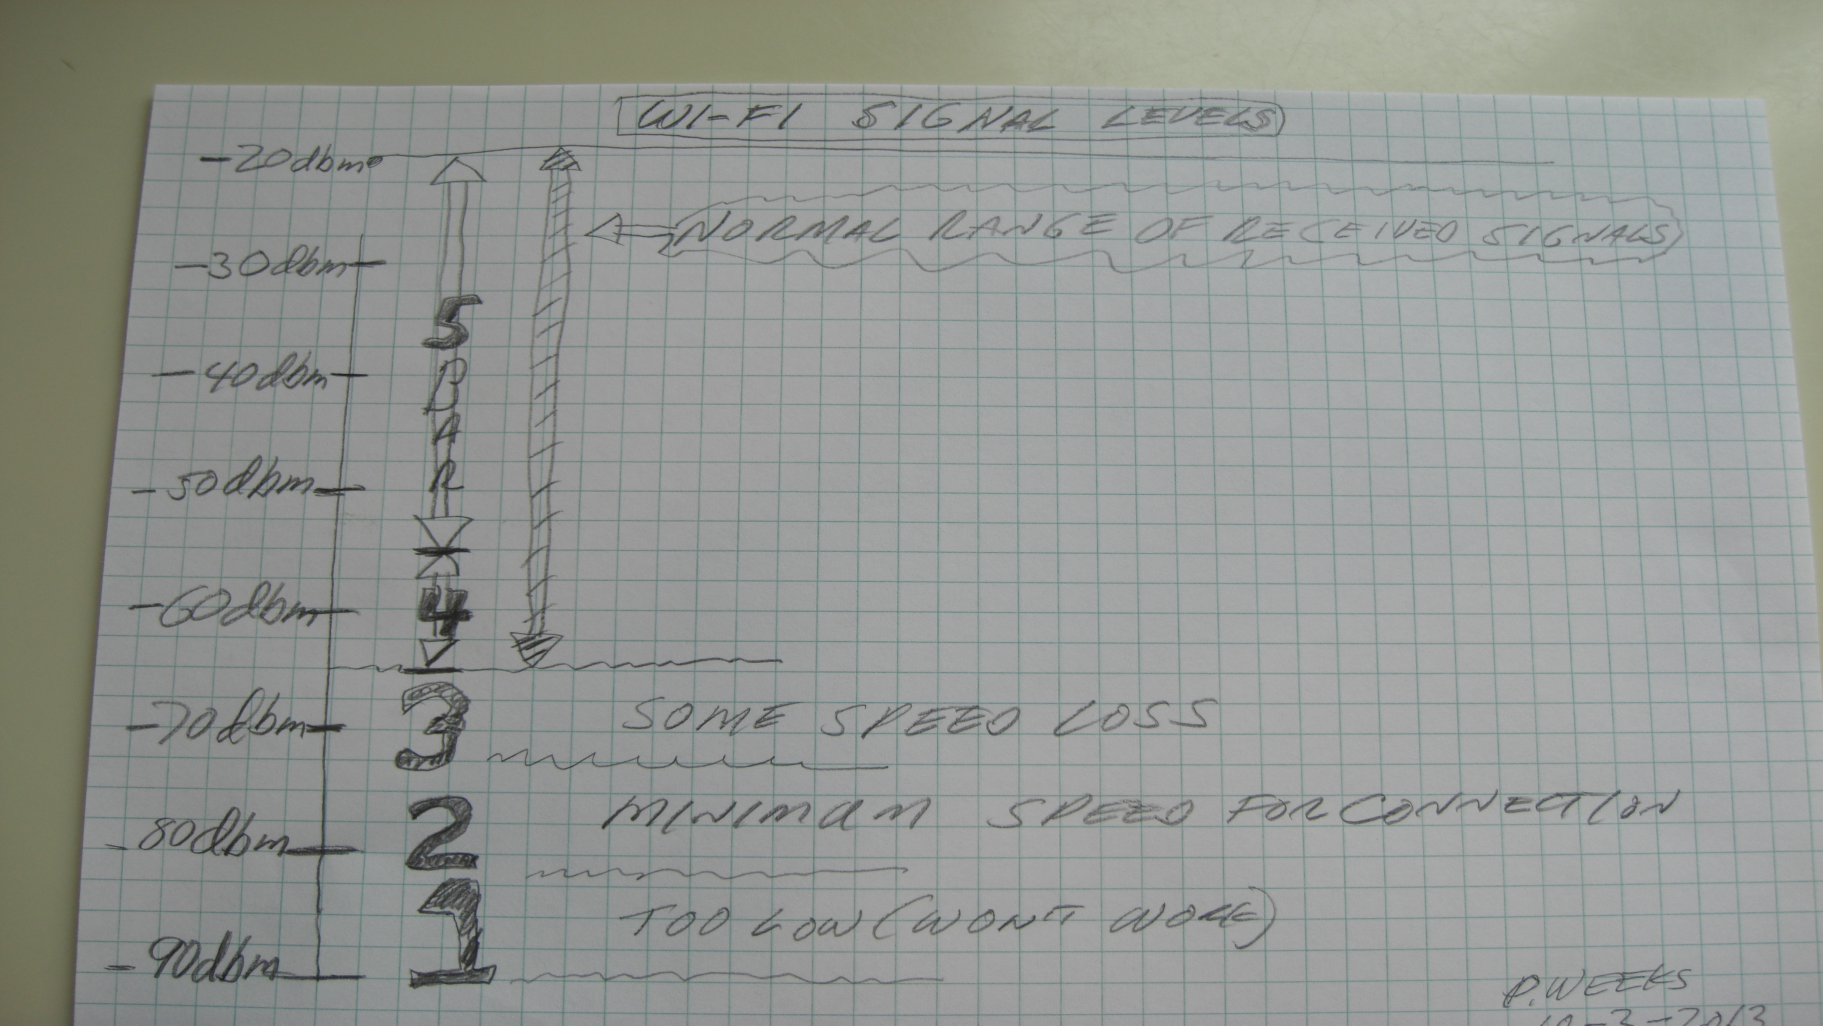 WI-FI SIGNAL LEVELS
-20dbm
NORMAL RANGE OF RECEIVED SIGNALS
-30dbm
5
BAR
-40dbm
-50dbm
-60dbm
4
-70dbm
3
SOME SPEED LOSS
-80dbm
2
MINIMUM SPEED FOR CONNECTION
1
TOO LOW (WON'T WORK)
-90dbm
P. WEEKS
10-3-2013